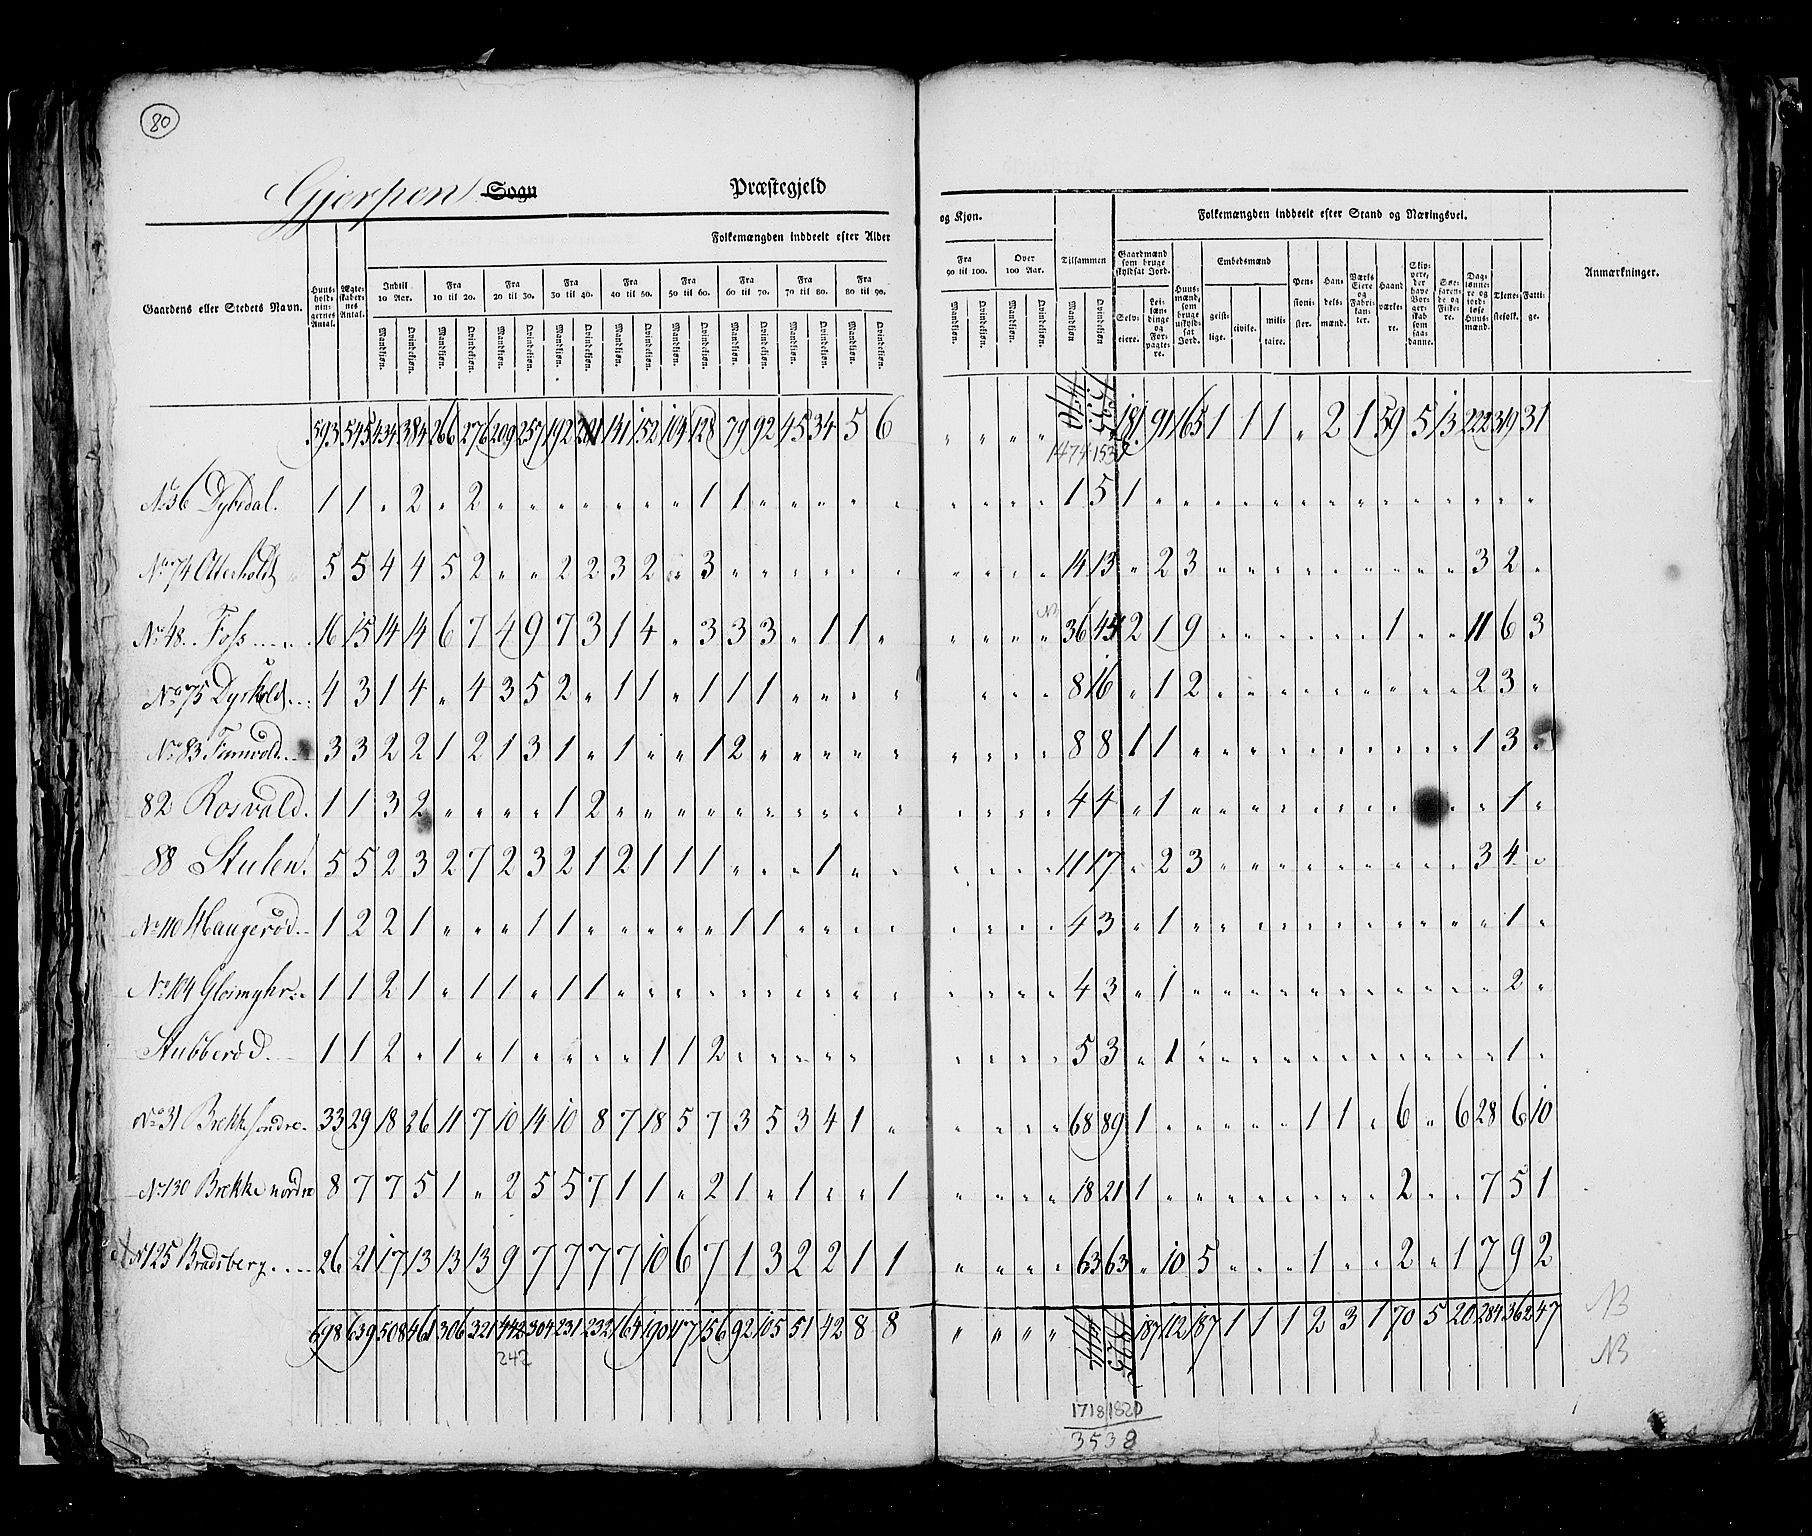 80
Gjerpen Sogn Præstegjeld
og Kjøn. Folkemængden inddeelt efter Stand og Næringsvei.
Folkemængden inddeelt efter Alder
Gaardens eller Stedets Navn. Huusholdningernes Antal. Ægteskabernes Antal. Indtil 10 Aar. Fra 10 til 20. Fra 20 til 30. Fra 30 til 40. Fra 40 til 50. Fra 50 til 60. Fra 60 til 70. Fra 70 til 80. Fra 80 til 90. Fra 90 til 100. Over 100 Aar. Tilsammen Gaardmænd som bruge skyldsat Jord. Huusmænd, som bruge uskyldsat Jord. Embedsmænd Pensionister. Handelsmænd. Værks Eiere og Fabrikanter. Haandværkere. Skippere, der have Borgerskab som saadanne. Søefarende og Fiskere. Dagslønnere og jordløse Huusmænd. Tienestefolk. Fattige. Anmærkninger.
Mandkjøn. Qvindekjøn. Mandkjøn. Qvindekjøn. Mandkjøn. Qvindekjøn. Mandkjøn. Qvindekjøn. Mandkjøn. Qvindekjøn. Mandkjøn. Qvindekjøn. Mandkjøn. Qvindekjøn. Mandkjøn. Qvindekjøn. Mandkjøn. Qvindekjøn. Mandkjøn. Qvindekjøn. Mandkjøn. Qvindekjøn. Mandkjøn. Qvindekjøn. Selveiere. Leilændinge og Forpagtere. geistlige. civile. militaire.
593 545 434 384 266 276 209 257 192 201 141 152 104 128 79 92 45 34 5 6 " " " " 181 91 165 1 1 1 " 2 1 59 5 13 222 319 31
1474 1535
No 36 Dybedal. 1 1 " 2 " 2 " " " " " " " 1 1 " " " " " " " " " 1 5 1 " " " " " " " " " " " " " "
No 74 Otterholt 5 5 4 4 5 2 " " 2 2 3 2 " 3 " " " " " " " " " " 14 13 " 2 3 " " " " " " " " " 3 2 "
NB
No 48. Foss 16 15 14 14 6 7 4 9 7 3 1 4 " 3 3 3 " 1 1 " " " " " 36 45 2 1 9 " " " " " " 1 " " 11 6 3
No 75 Dyrkold 4 3 1 4 " 4 3 5 2 " 1 1 " 1 1 1 " " " " " " " " 8 16 " 1 2 " " " " " " " " " 2 3 "
No 83 3 3 2 2 1 2 1 3 1 " 1 " " 1 2 " " " " " " " " " 8 8 1 1 " " " " " " " " " " 1 3 "
82 Rosvald. 1 1 3 2 " " " " 1 2 " " " " " " " " " " " " " " 4 4 " 1 " " " " " " " " " " 1 "
88 Stulen. 5 5 2 3 2 7 2 3 2 1 2 1 1 1 " " " 1 " " " " " " 11 17 " 2 3 " " " " " " " " " 3 4 "
No 110 Haugerød 1 2 2 1 " " " 1 1 " " " " " 1 1 " " " " " " " " 4 3 " 1 " " " " " " " " " " " 1 "
No 104 Gleimyhr 1 1 2 1 " 1 1 " 1 1 " " " " " " " " " " " " " " 4 3 " 1 " " " " " " " " " " " 2 "
Stubberød. 1 1 2 " 1 " 1 " " " " 1 1 2 " " " " " " " " " 5 3 " 1 " " " " " " " " " " " 1 "
No 31 Brekke søndre 33 29 18 26 11 7 10 14 10 8 7 18 5 7 3 5 3 4 1 " " " " " 68 89 1 " " " " " " 1 1 " 6 " 6 28 6 10
No 130 Brekke nordre 8 7 7 5 1 " 2 5 5 7 1 1 " 2 1 " 1 " " 1 " " " " 18 21 1 " " " " " " " " 2 " " 7 5 1
No 125 Bradsberg 26 21 17 13 13 13 9 7 7 7 7 10 6 7 1 3 2 2 1 1 " " " " 63 63 " 10 5 " " " 1 " " 2 " 1 7 9 2
698 639 508 461 306 321 442 304 231 232 164 190 117 156 92 105 51 42 8 8 " " " " 187 112 187 1 1 1 2 3 1 70 5 20 284 362 47 NB
242
NB
1718 1820
3538